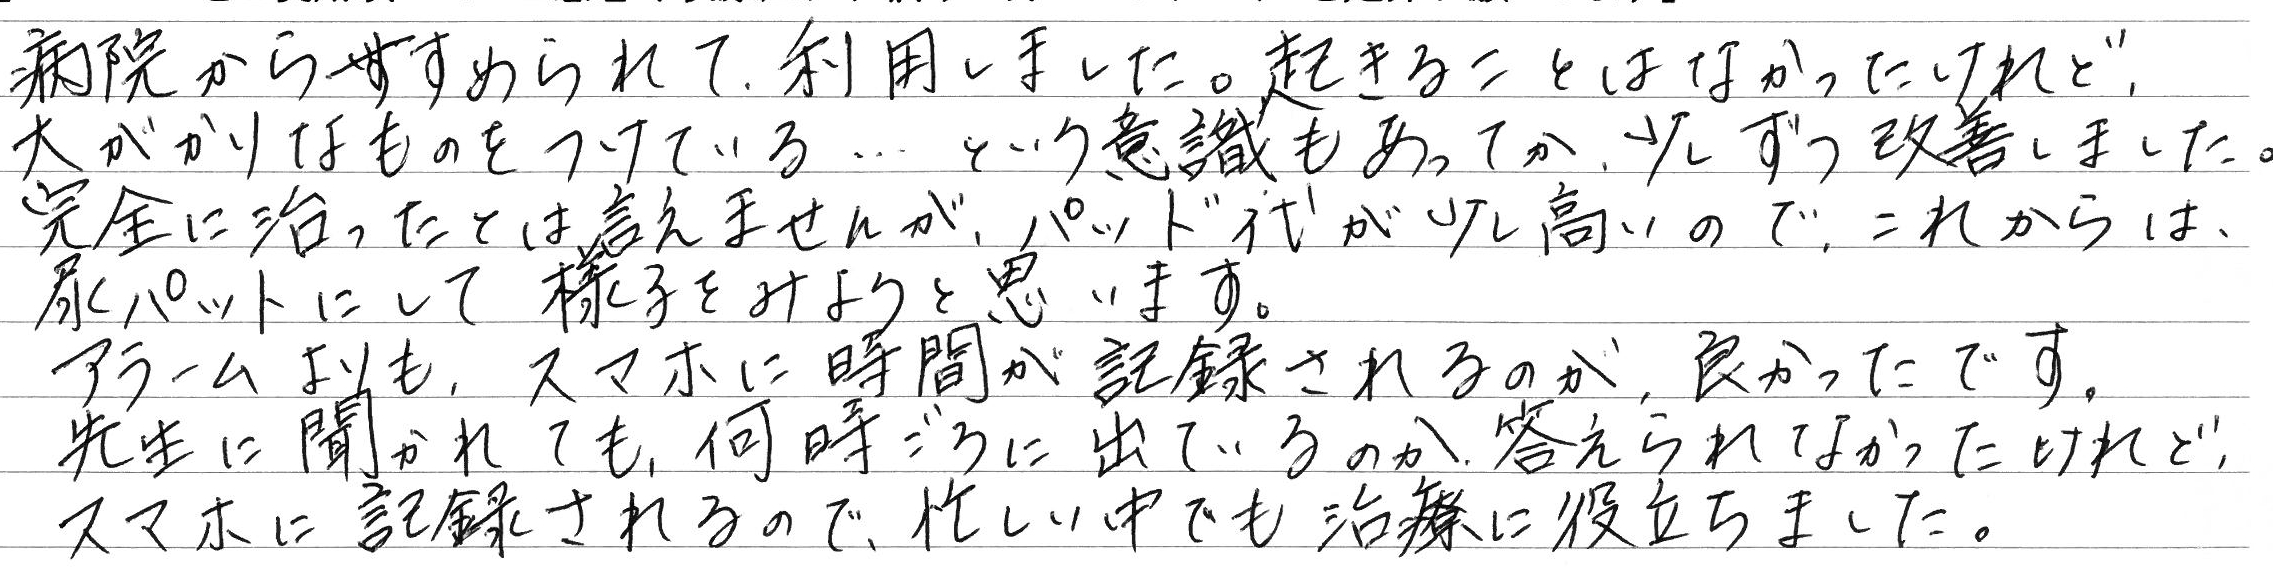 病院からすすめられて、利用しました。起きることはなかったけれど、
大がかりなものをつけている…という意識もあってか、少しずつ改善しました。
完全に治ったとは言えませんが、パッド代が少し高いので、これからは、
尿パットにして様子をみようと思います。
アラームよりも、スマホに時間が記録されるのが、良かったです。
先生に聞かれても、何時ごろに出ているのか、答えられてなかったけれど、
スマホに記録されるので、忙しい中でも治療に役立ちました。